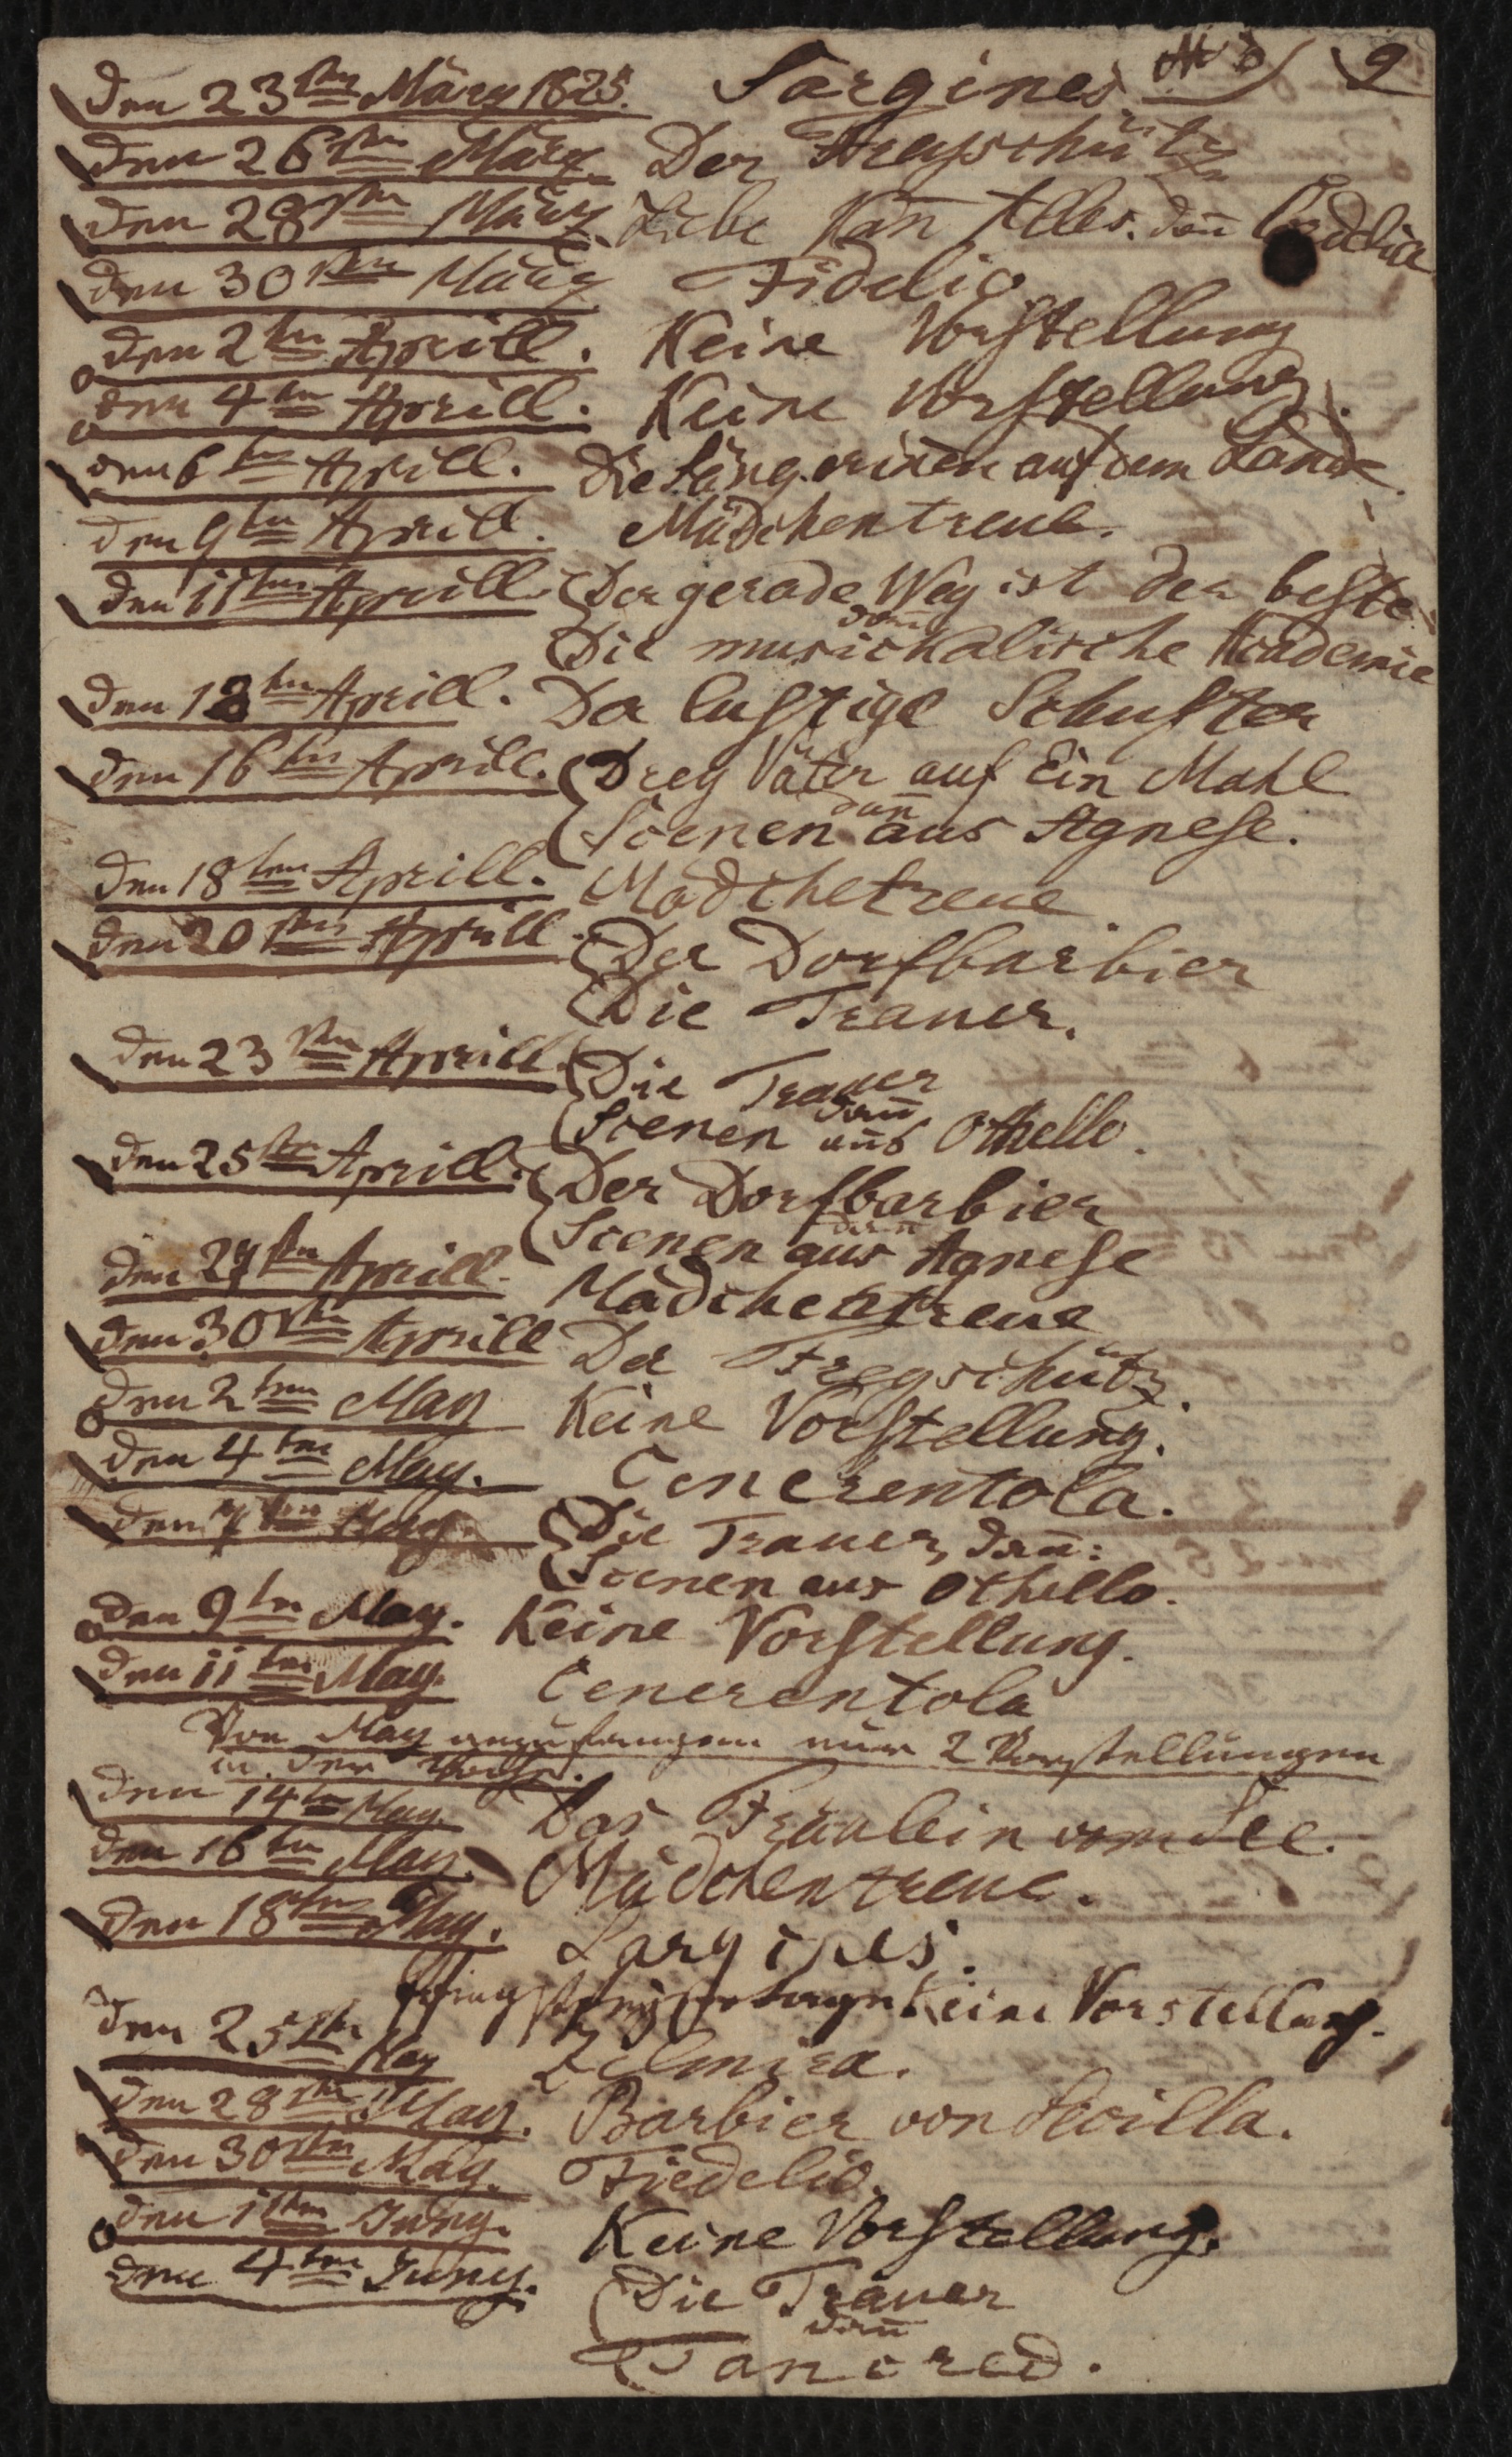 den 23sten März 1825. Sargines. 9
den 26sten März. Der Freyschütz
den 28sten März. Liebe kan̄ Alles. dan̄
den 30sten März Fidelio
den 2ten Aprill. Keine Vorstellung
den 4ten Aprill. Keine Vorstellung.
den 6ten Aprill. Die Sängerinen auf dem Lande.
den 9ten Aprill. Mädchentreue.
den 11ten Aprill. Der gerade Weg ist der beste
dan̄
Die musickalische Academie
den 13ten Aprill. Der lustige Schuster
den 16ten Aprill. Drey Väter auf Ein Mahl
dan̄
Scenen aus Agnese.
den 18ten Aprill. Mädchetreue.
den 20sten Aprill. Der Dorfbarbier
Die Trauer.
den 23sten Aprill. Die Trauer
dan̄
Scenen aus Othello.
den 25sten Aprill. Der Dorfbarbier
dan̄
Scenen aus Agnese
den 27sten Aprill. Mädchentreue
den 30sten Aprill Der Freyschütz.
den 2ten May Keine Vorstellung.
den 4ten May. Cenerentola.
den 7ten May. Die Trauer, dan̄:
Scenen aus Othello.
den 9ten May. Keine Vorstellung.
den 11ten May. Cenerentola
Von May anzufangen nur 2 Vorstellungen
in der Woche.
den 14ten May. Das Fräulein vom See.
den 16ten May. Mädchentreue.
den 18ten May. Sargines.
Pfingstfeyertage Keine Vorstellung.
den 25sten May Zelmira.
den 28sten May. Barbier von Sevilla.
den 30sten May. Fiedelio.
den 1sten Juny. Keine Vorstellung.
den 4ten Juny. Die Trauer
dan̄
Tancred.